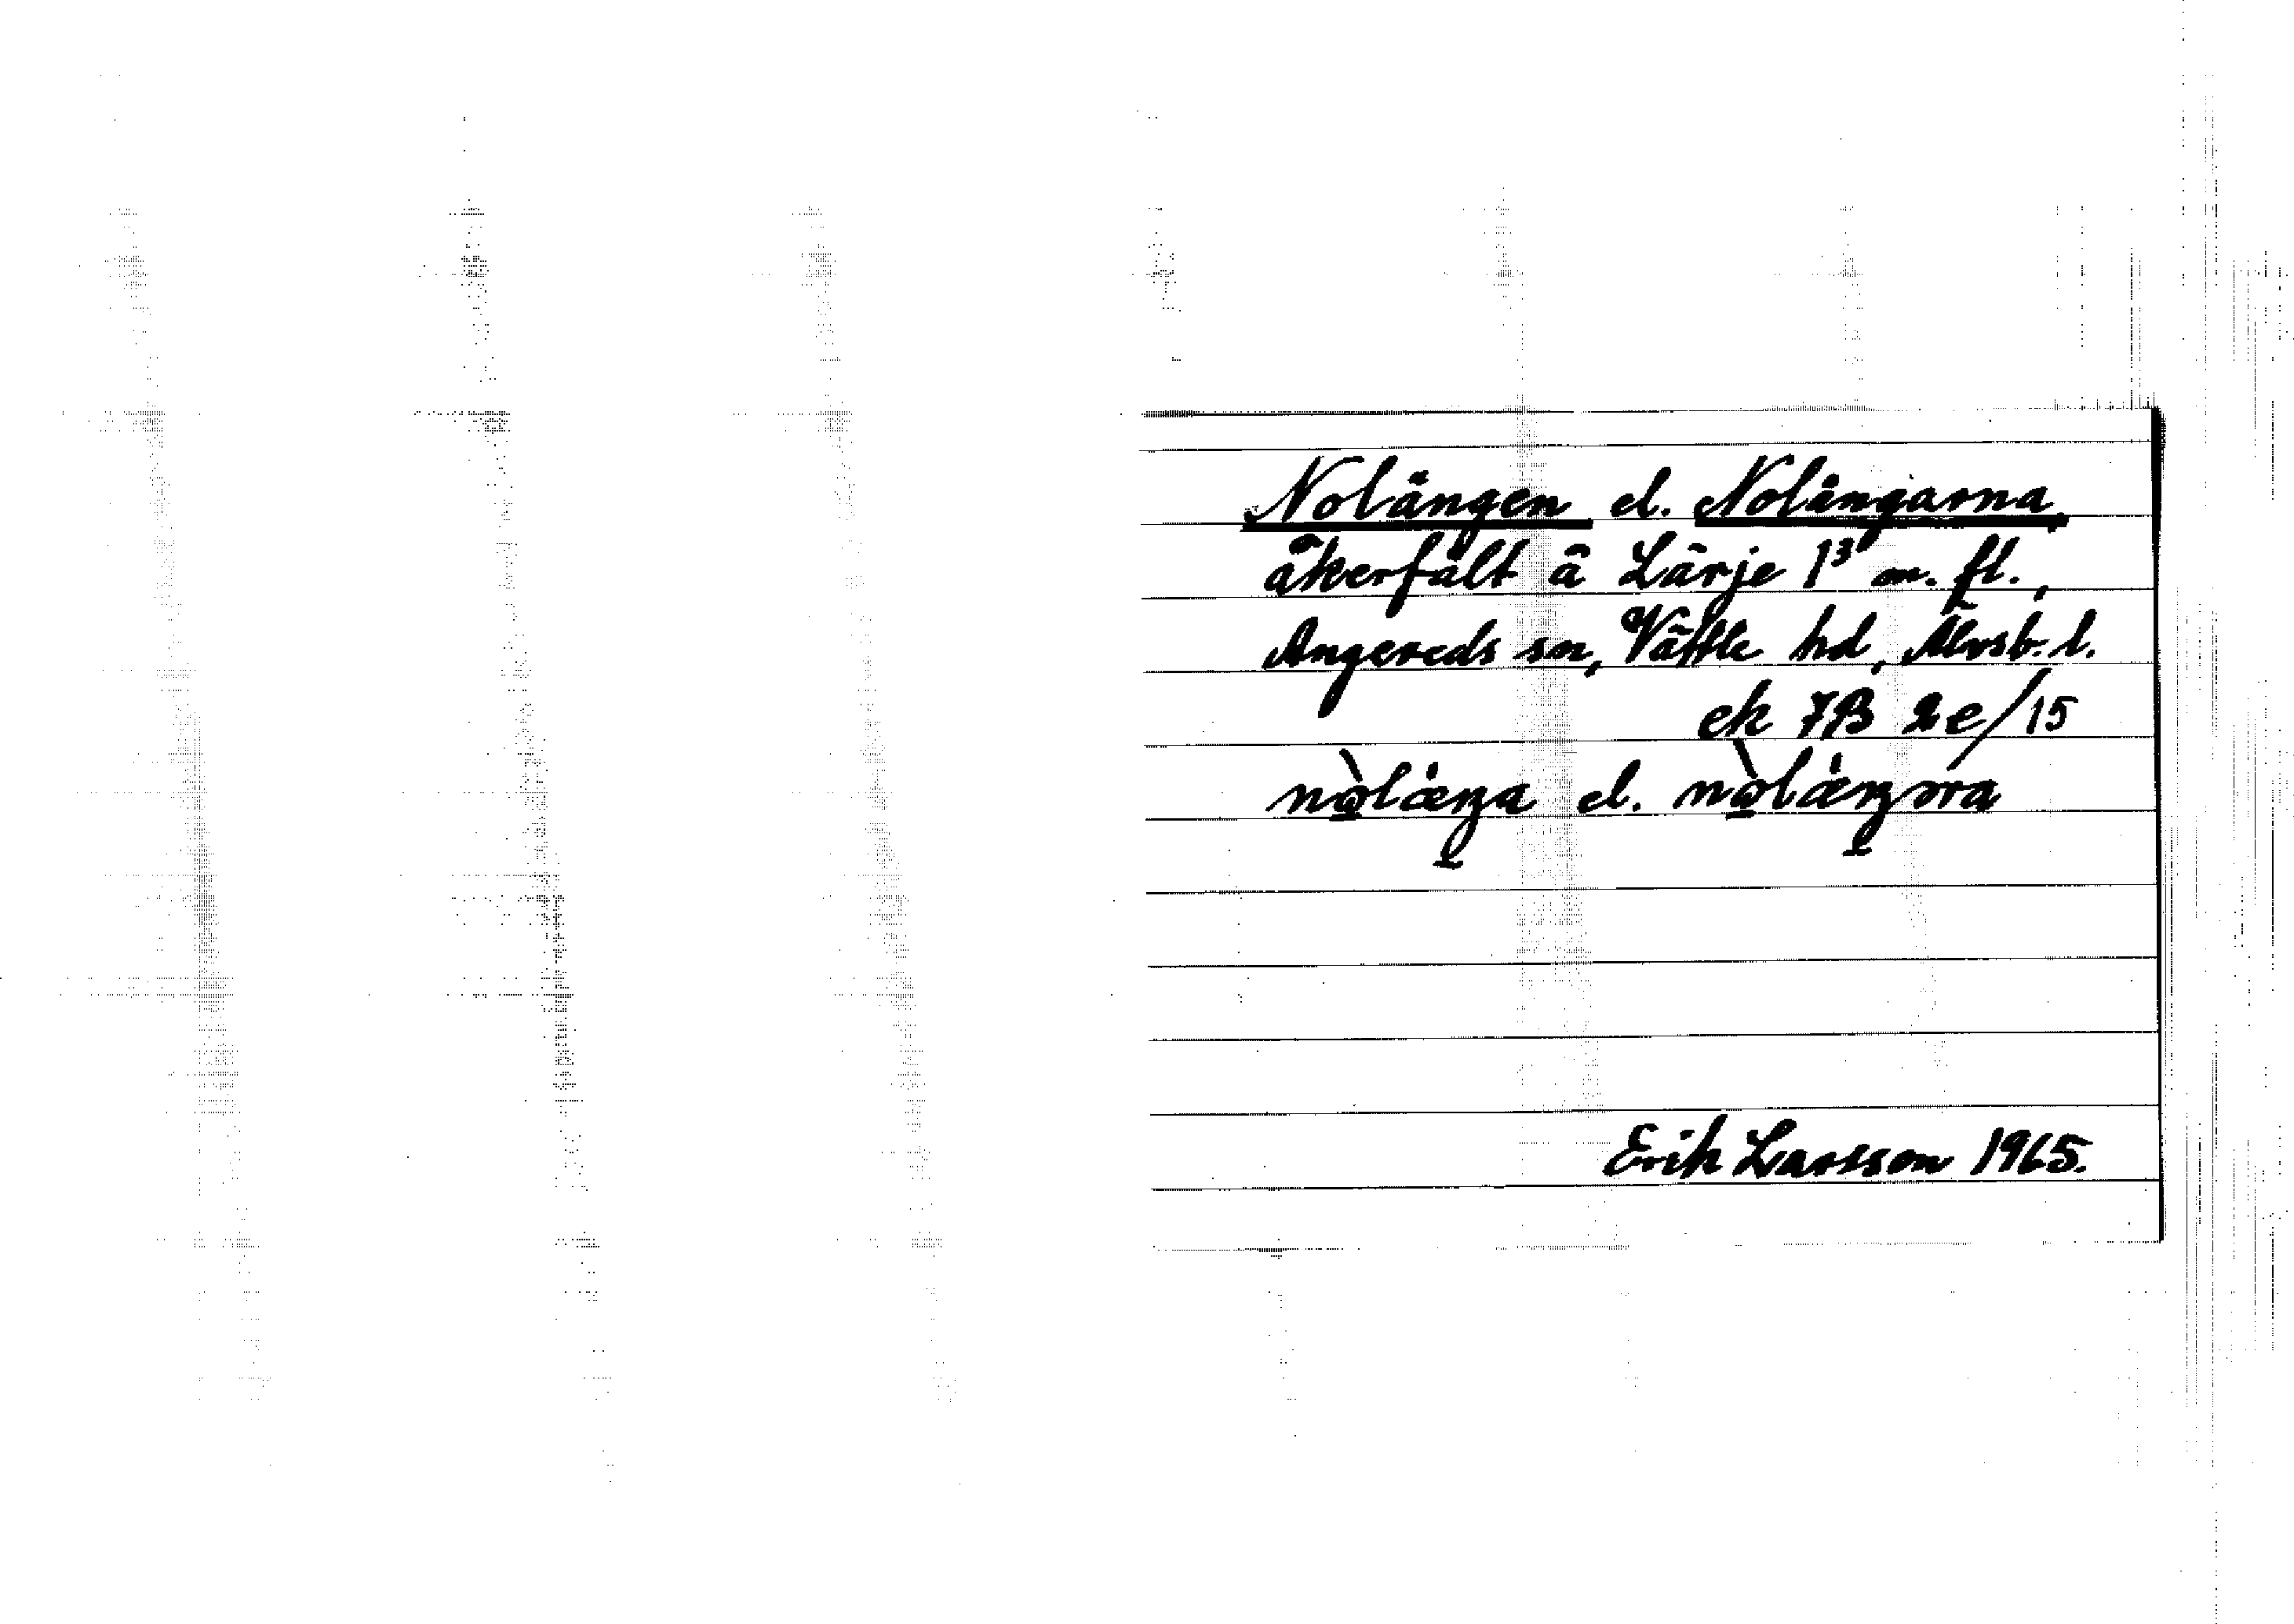 Nolängen el. Nolängarna,
åkerfält å Lärje 1³ m. fl.,
Angereds sn, Vättle hd, Älvsb. l.
ek 7B 2e/15
nòlæŋa el. nòlæŋɔra
Erik Larsson 1965.